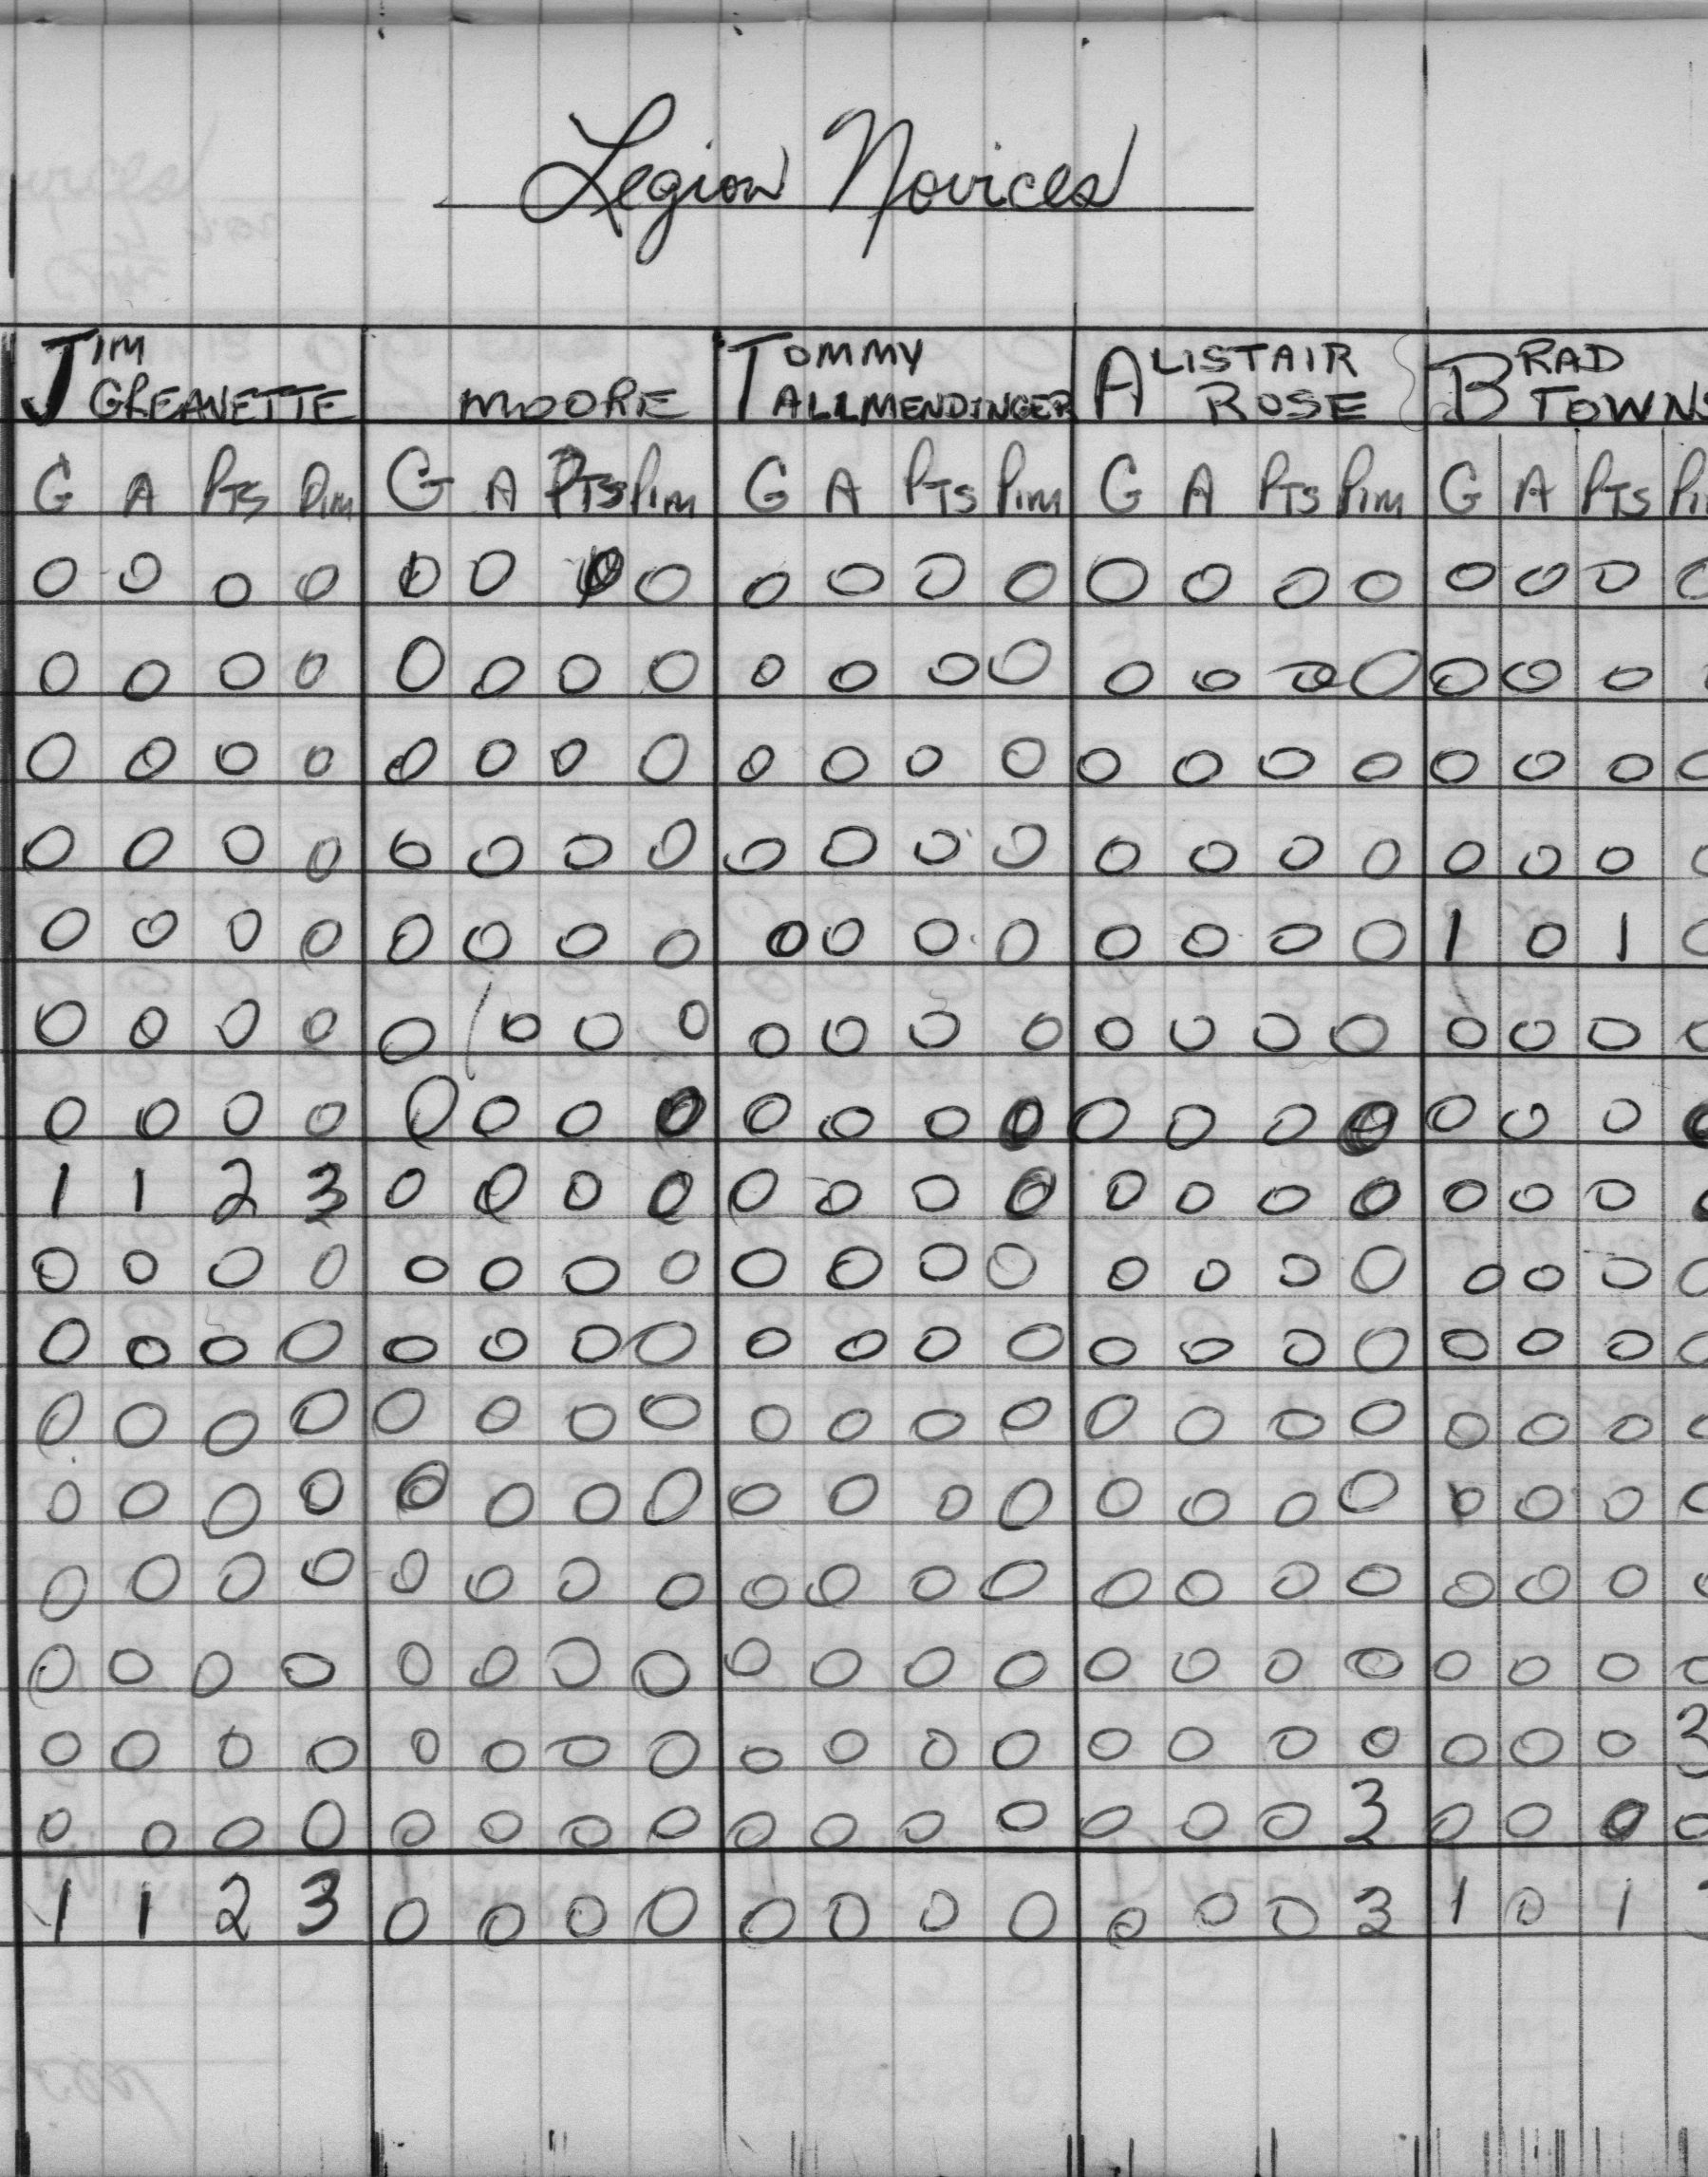 Legion Novices
JIM GREANETTE MOORE TOMMY ALLMENDINGER ALISTAIR ROSE BRAD TOWNS
G A PTS PIM G A PTS PIM G A PTS PIM G A PTS PIM G A PTS PI
0 0 0 0 0 0 0 0 0 0 0 0 0 0 0 0 0 0 0 0
0 0 0 0 0 0 0 0 0 0 0 0 0 0 0 0 0 0 0
0 0 0 0 0 0 0 0 0 0 0 0 0 0 0 0 0 0 0 0
0 0 0 0 0 0 0 0 0 0 0 0 0 0 0 0 0 0 0 0
0 0 0 0 0 0 0 0 0 0 0 0 0 0 0 0 1 0 1 0
0 0 0 0 0 0 0 0 0 0 0 0 0 0 0 0 0 0 0 0
0 0 0 0 0 0 0 0 0 0 0 0 0 0 0 0 0 0 0 0
1 1 2 3 0 0 0 0 0 0 0 0 0 0 0 0 0 0 0 0
0 0 0 0 0 0 0 0 0 0 0 0 0 0 0 0 0 0 0 0
0 0 0 0 0 0 0 0 0 0 0 0 0 0 0 0 0 0 0 0
0 0 0 0 0 0 0 0 0 0 0 0 0 0 0 0 0 0 0 0
0 0 0 0 0 0 0 0 0 0 0 0 0 0 0 0 0 0 0 0
0 0 0 0 0 0 0 0 0 0 0 0 0 0 0 0 0 0 0 0
0 0 0 0 0 0 0 0 0 0 0 0 0 0 0 0 0 0 0 0
0 0 0 0 0 0 0 0 0 0 0 0 0 0 0 0 0 0 0 3
0 0 0 0 0 0 0 0 0 0 0 0 0 0 0 3 0 0 0 0
1 1 2 3 0 0 0 0 0 0 0 0 0 0 0 3 1 0 1